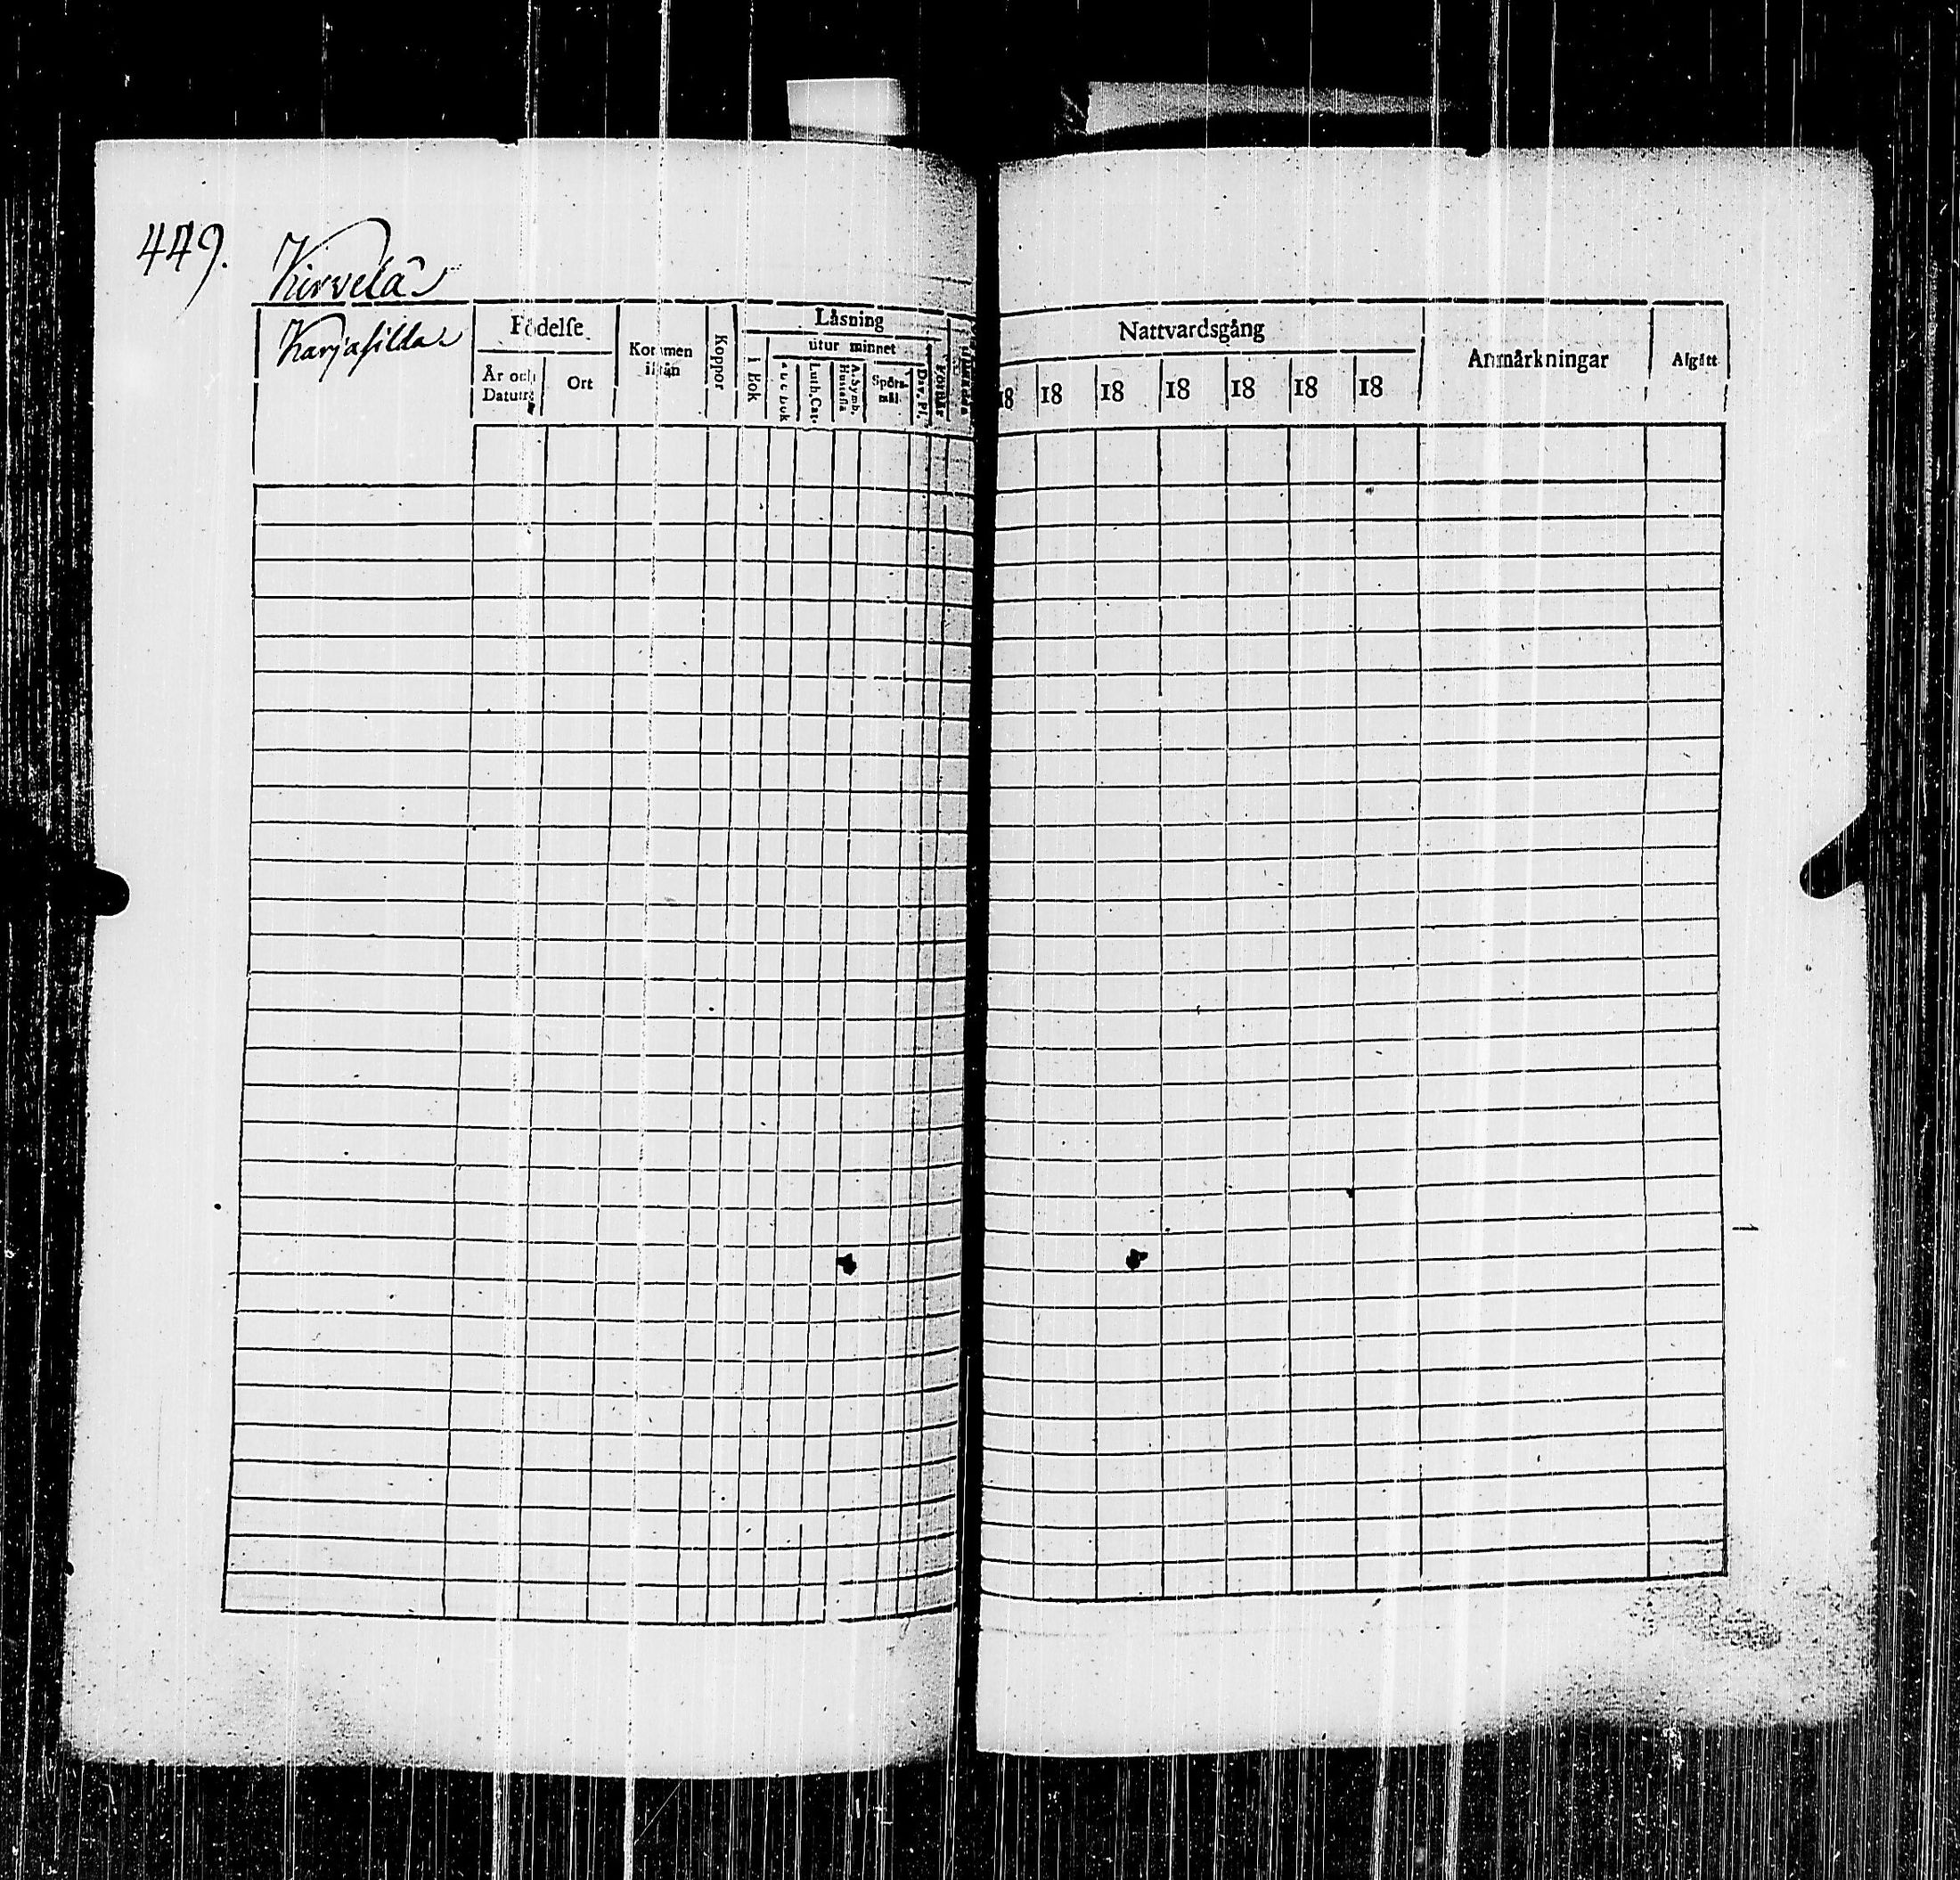 449.
Kirvelä
Karjasilda
Födelse
År och Datum
Ort
Kommen ifrån
Koppor
Låsning
i Bok
utur minnet
a b c bok
Luth. Cat.
A. Symb. Hustafla
Spörsmål
Dav. Ps.
Förstår
Nattvardsgång
18 18 18 18 18 18 18
Anmårkningar
Afgått